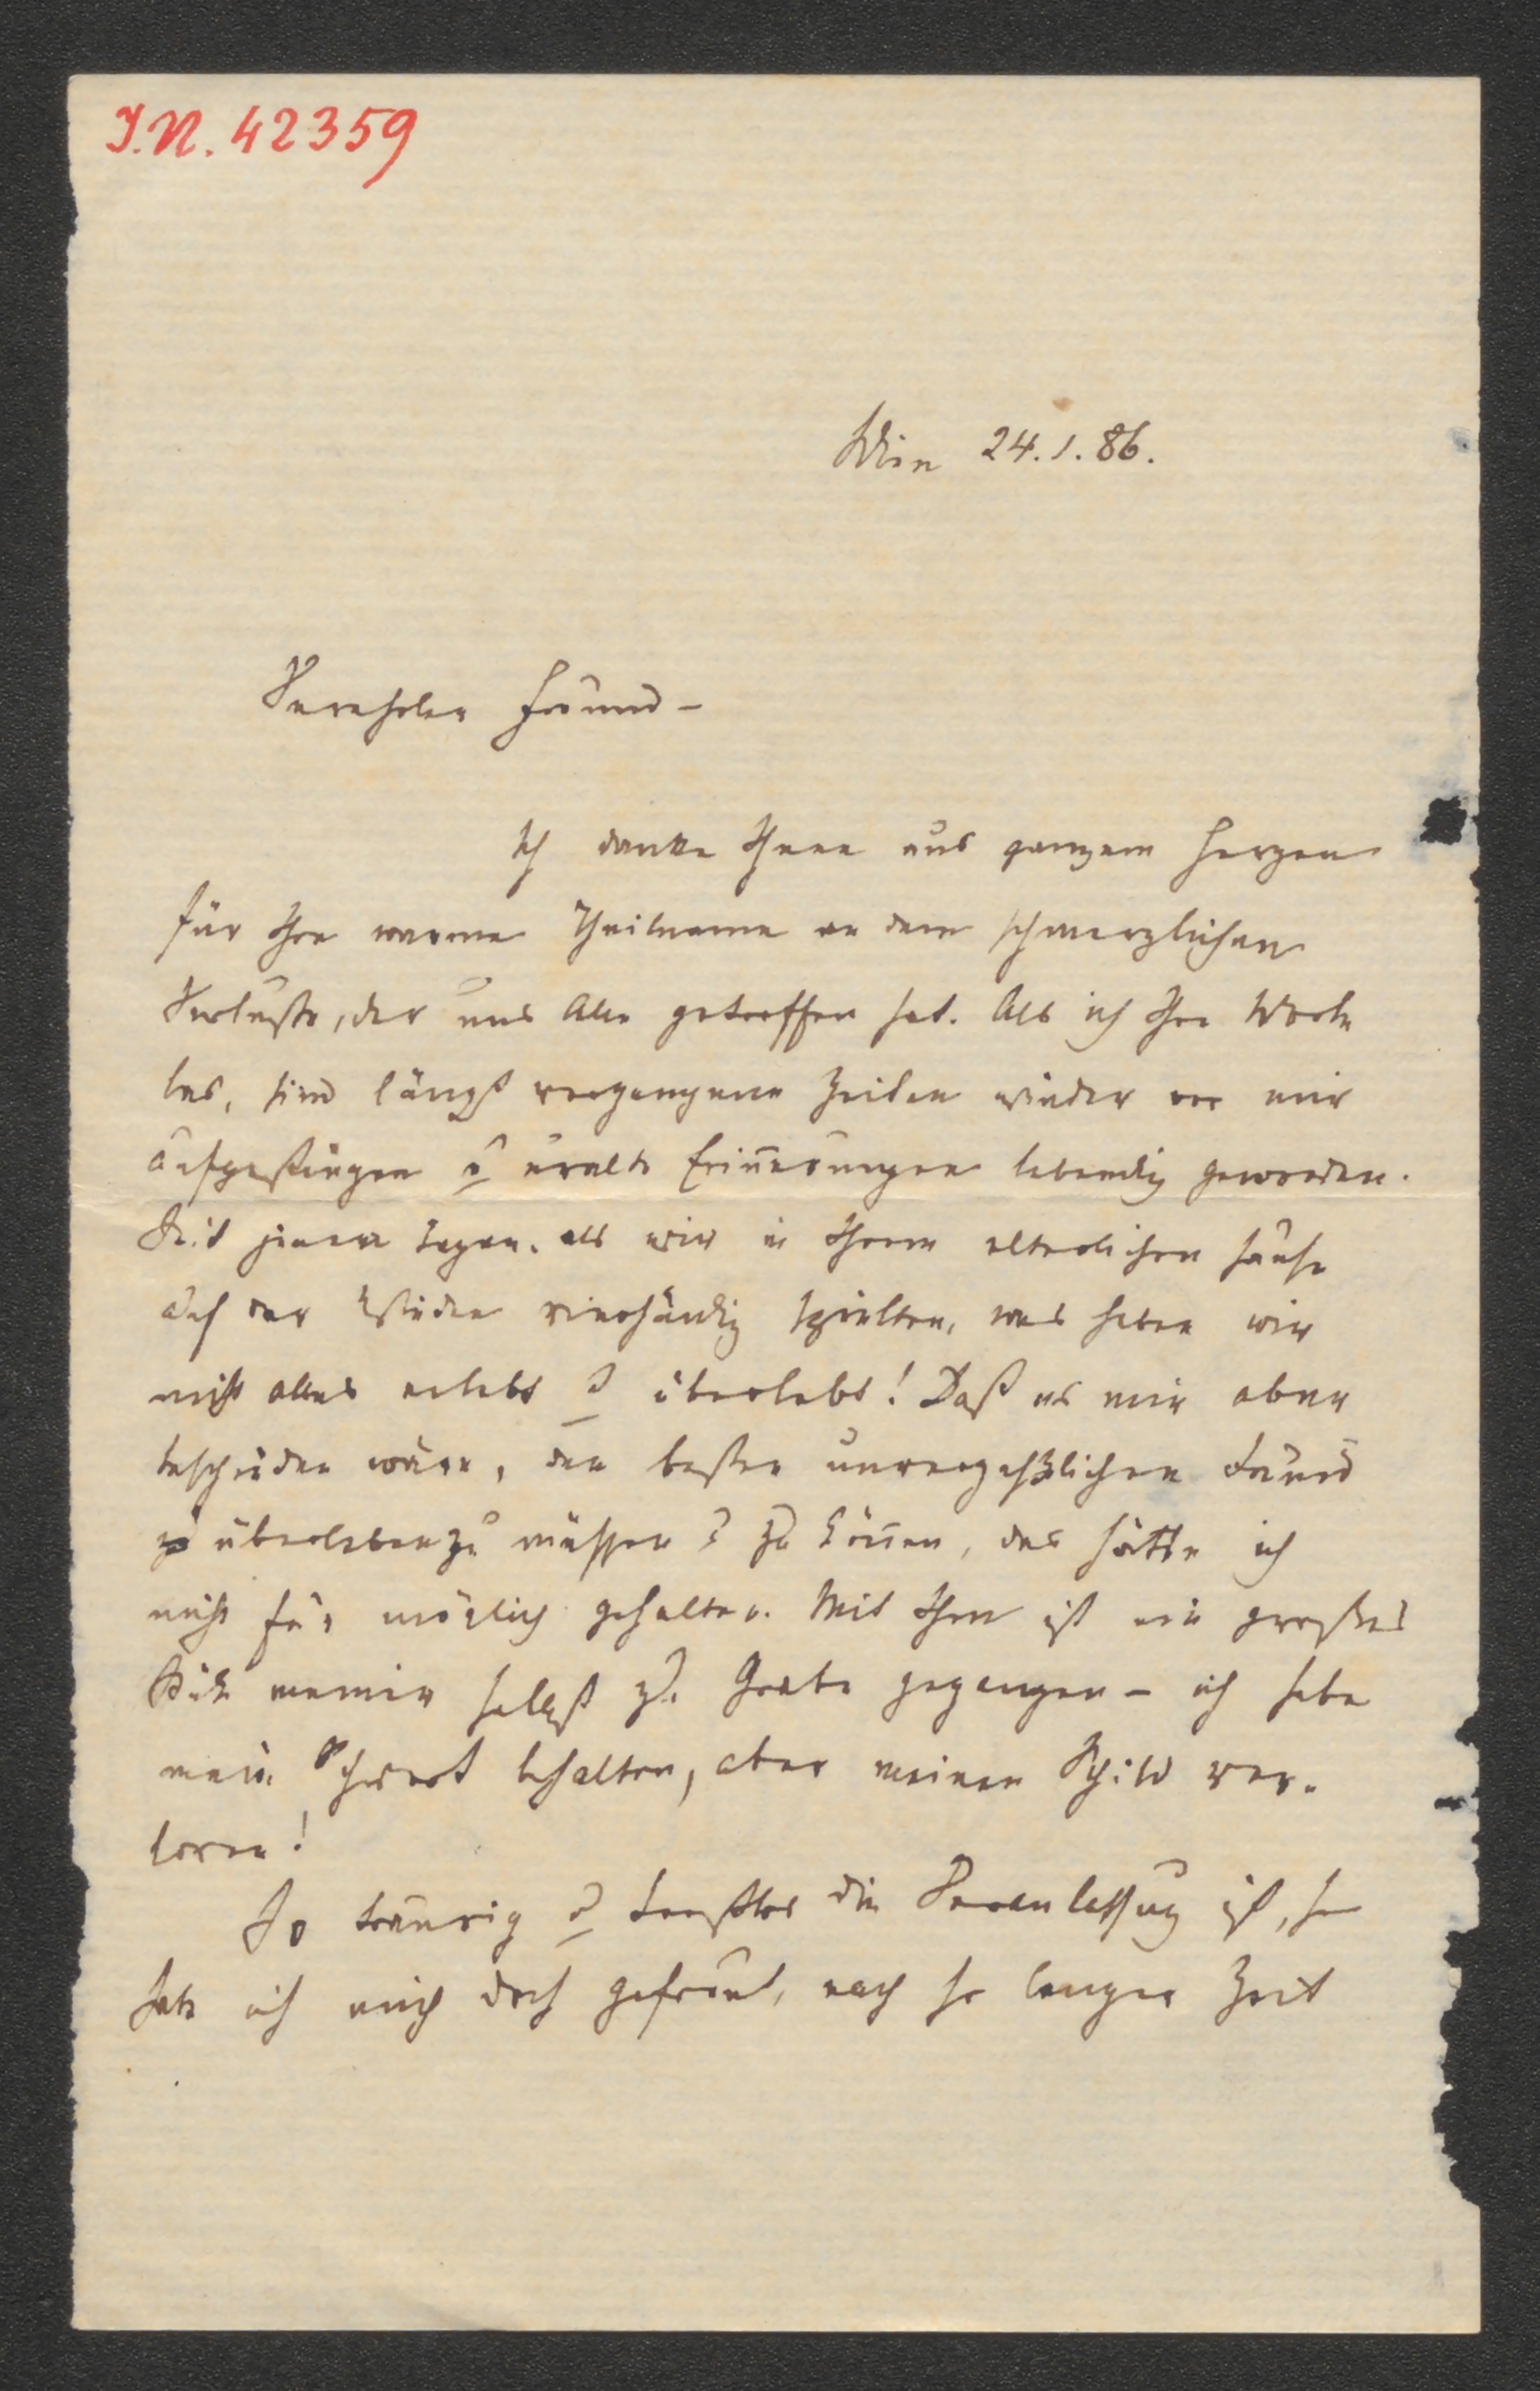 I.N. 42359
Wien 24.1.86.
Verehrter Freund –
Ich danke Ihnen aus ganzem Herzen
für Ihre warme Theilname an dem schmerzlichen
Verluste, der uns Alle getroffen hat. Als ich Ihre Worte
las, sind längst vergangene Zeiten wieder vor mir
aufgestiegen u uralte Erinnerungen lebendig geworden.
Seit jenen Tagen, als wir in Ihrem elterlichen Hause
auf der Wieden vierhändig spielten, was haben wir
nicht alles erlebt u überlebt! Daß es mir aber
beschieden wäre, den besten unvergeßlichen Freund
zu überleben zu müssen u zu können, das hätte ich
nicht für möglich gehalten. Mit Ihm ist ein großes
Stück meiner selbst zu Grabe gegangen – ich habe
mein Schwert behalten, aber meinen Schild ver-
loren!
So traurig u trostlos die Veranlassung ist, so
habe ich mich doch gefreut, nach so langer Zeit